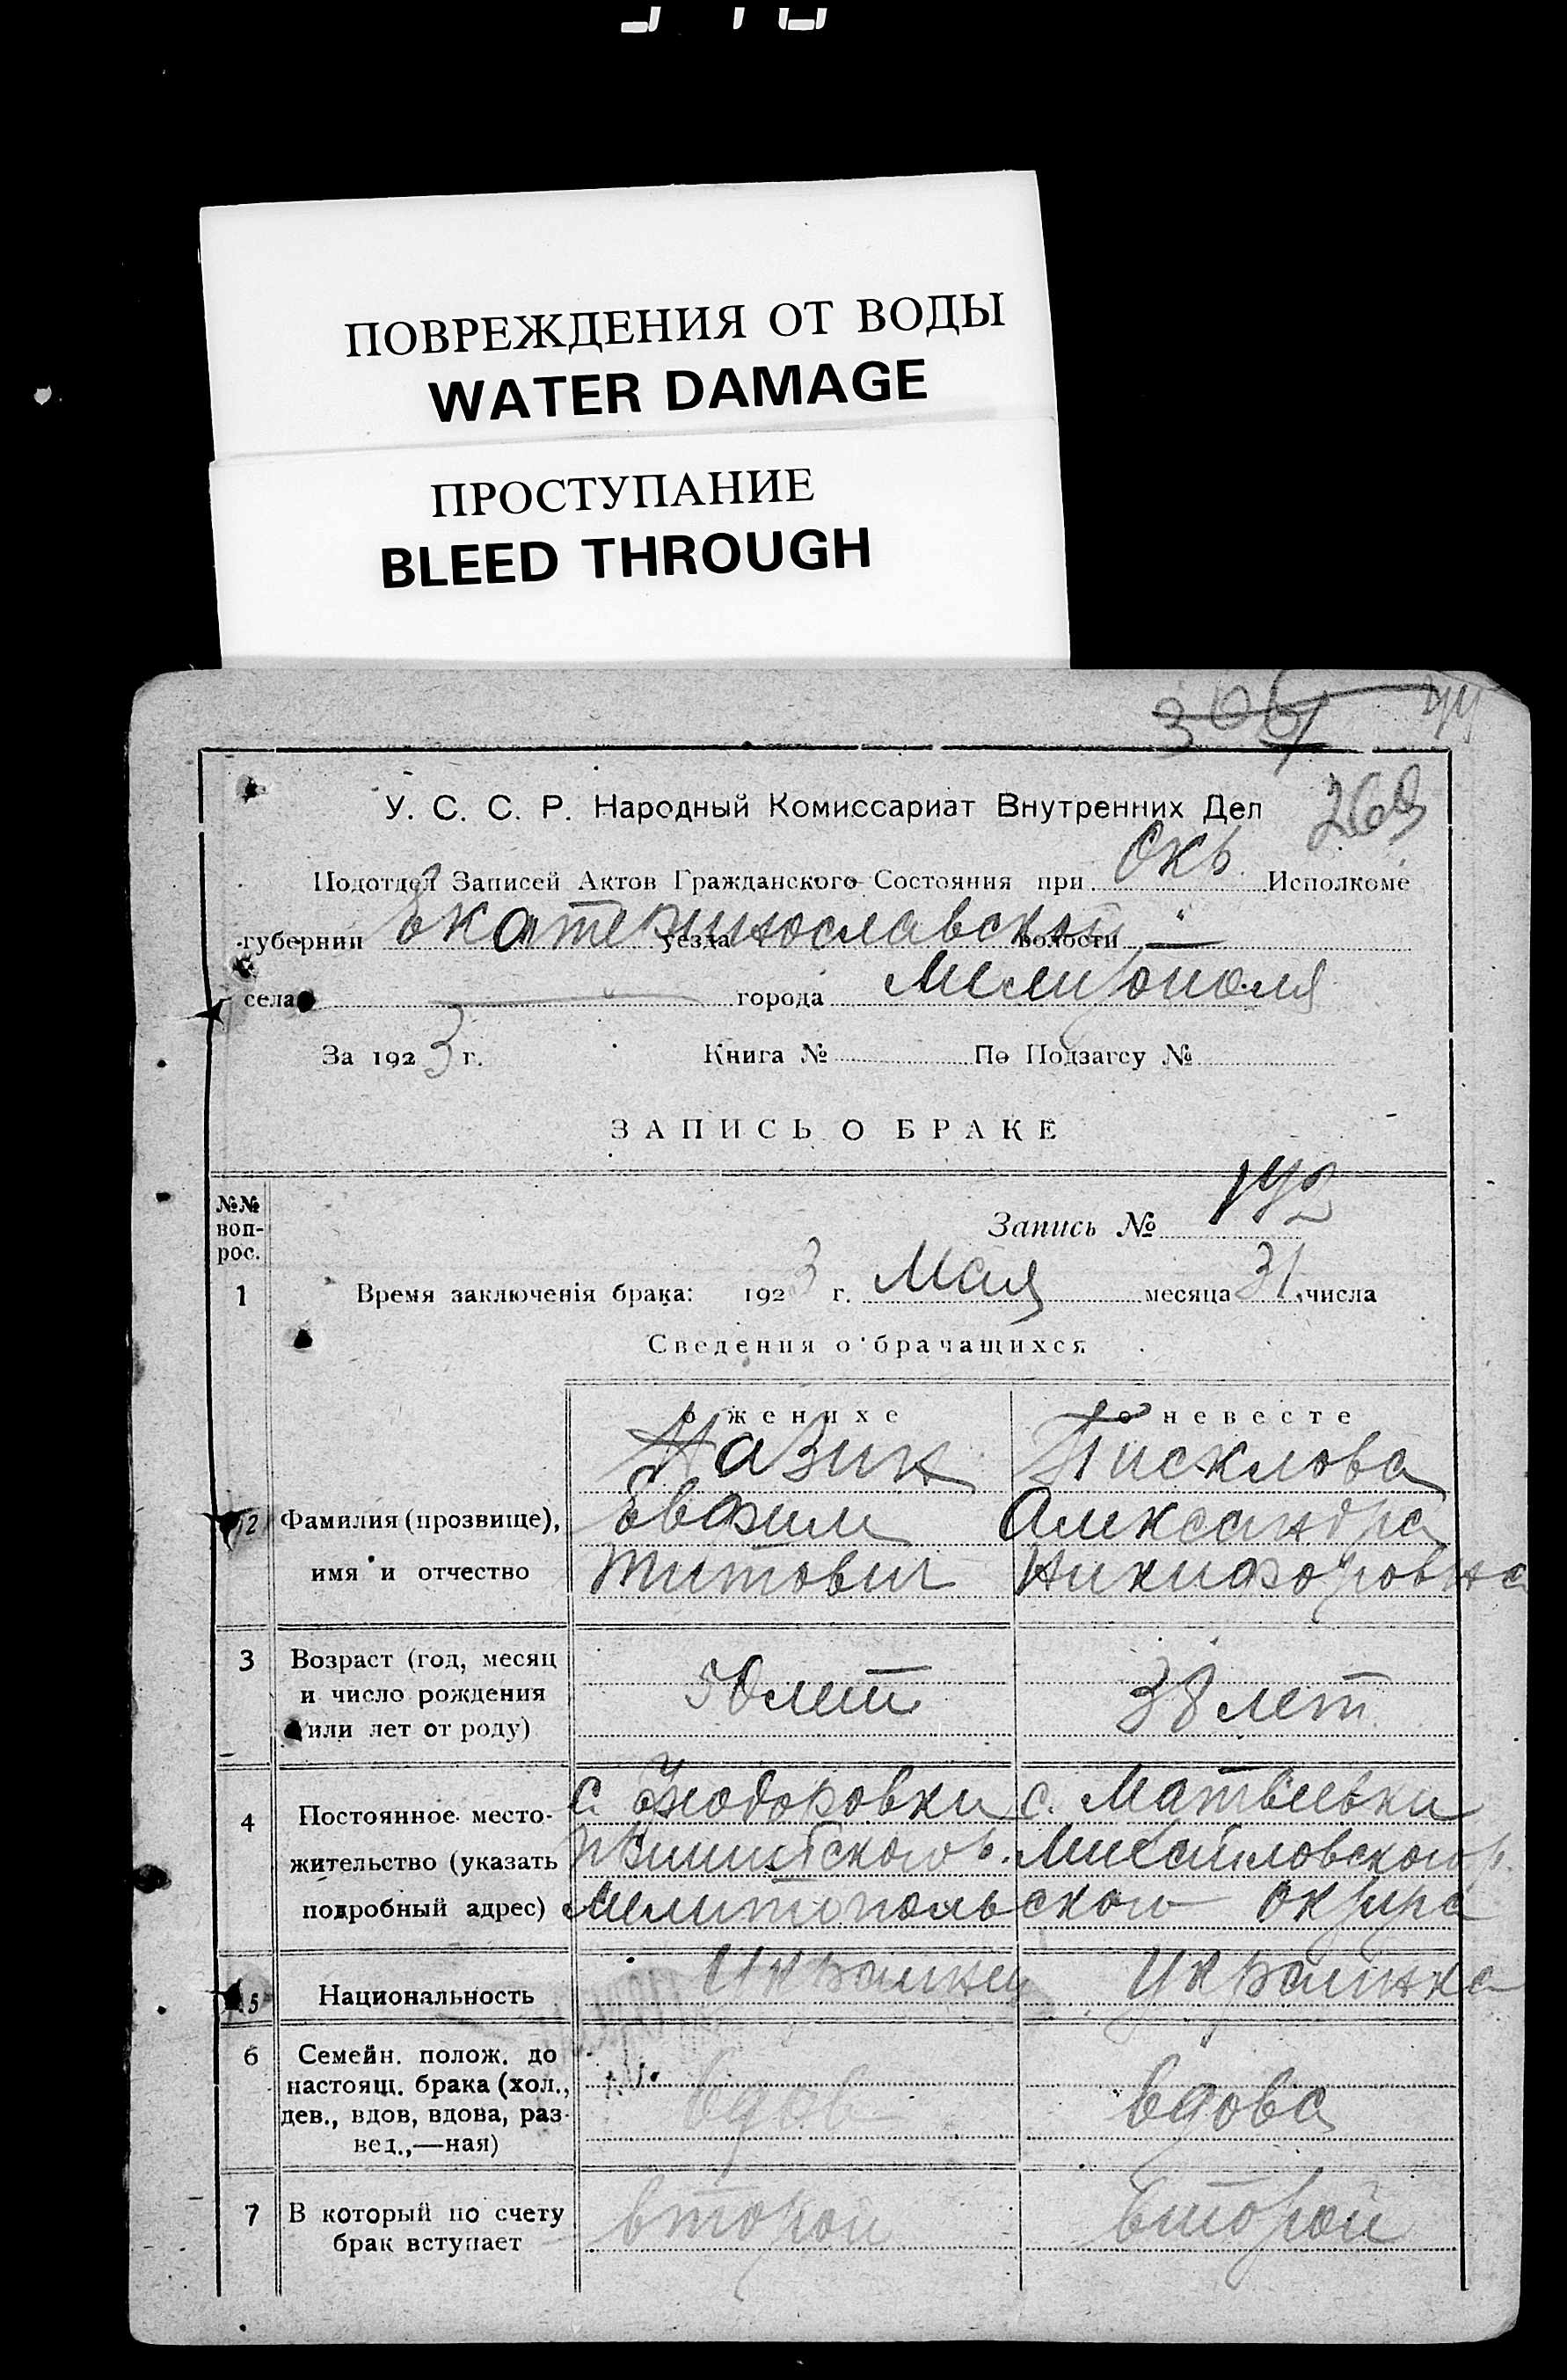 ПОВРЕЖДЕНИЯ ОТ ВОДЫ
WATER DAMAGE
ПРОСТУПАНИЕ
BLEED THROUGH
У. С. С. Р. Народный Комиссариат Внутренних Дел
Подотдел Записей Актов Гражданского Состояния при Окр. Исполкоме
губернии Екатеринославской уезда волости
села города Мелитополя
За 1923 г. Книга № По Подзагсу №
ЗАПИСЬ О БРАКЕ
№№ воп-
рос.
Запись №
1 Время заключенія брака: 1923 г. Мая месяца 31 числа
Сведения о брачащихся
о женихе о невесте
Назик Писклова
2 Фамилия (прозвище), Евфим Александра
имя и отчество Титович Никифоровна
3 Возраст (год, месяц
и число рождения 50 лет 38 лет
или лет от роду)
4 Постоянное место- с. Феодоровки с. Матвеевки
жительство (указать Михайловского р.
подробный адрес) Мелитопольского округа
5 Национальность Украинец Украинка
6 Семейн. полож. до
настоящ. брака (хол.,
дев., вдов, вдова, раз- вдов вдова
вед.,—ная)
7 В который по счету второй второй
брак вступает